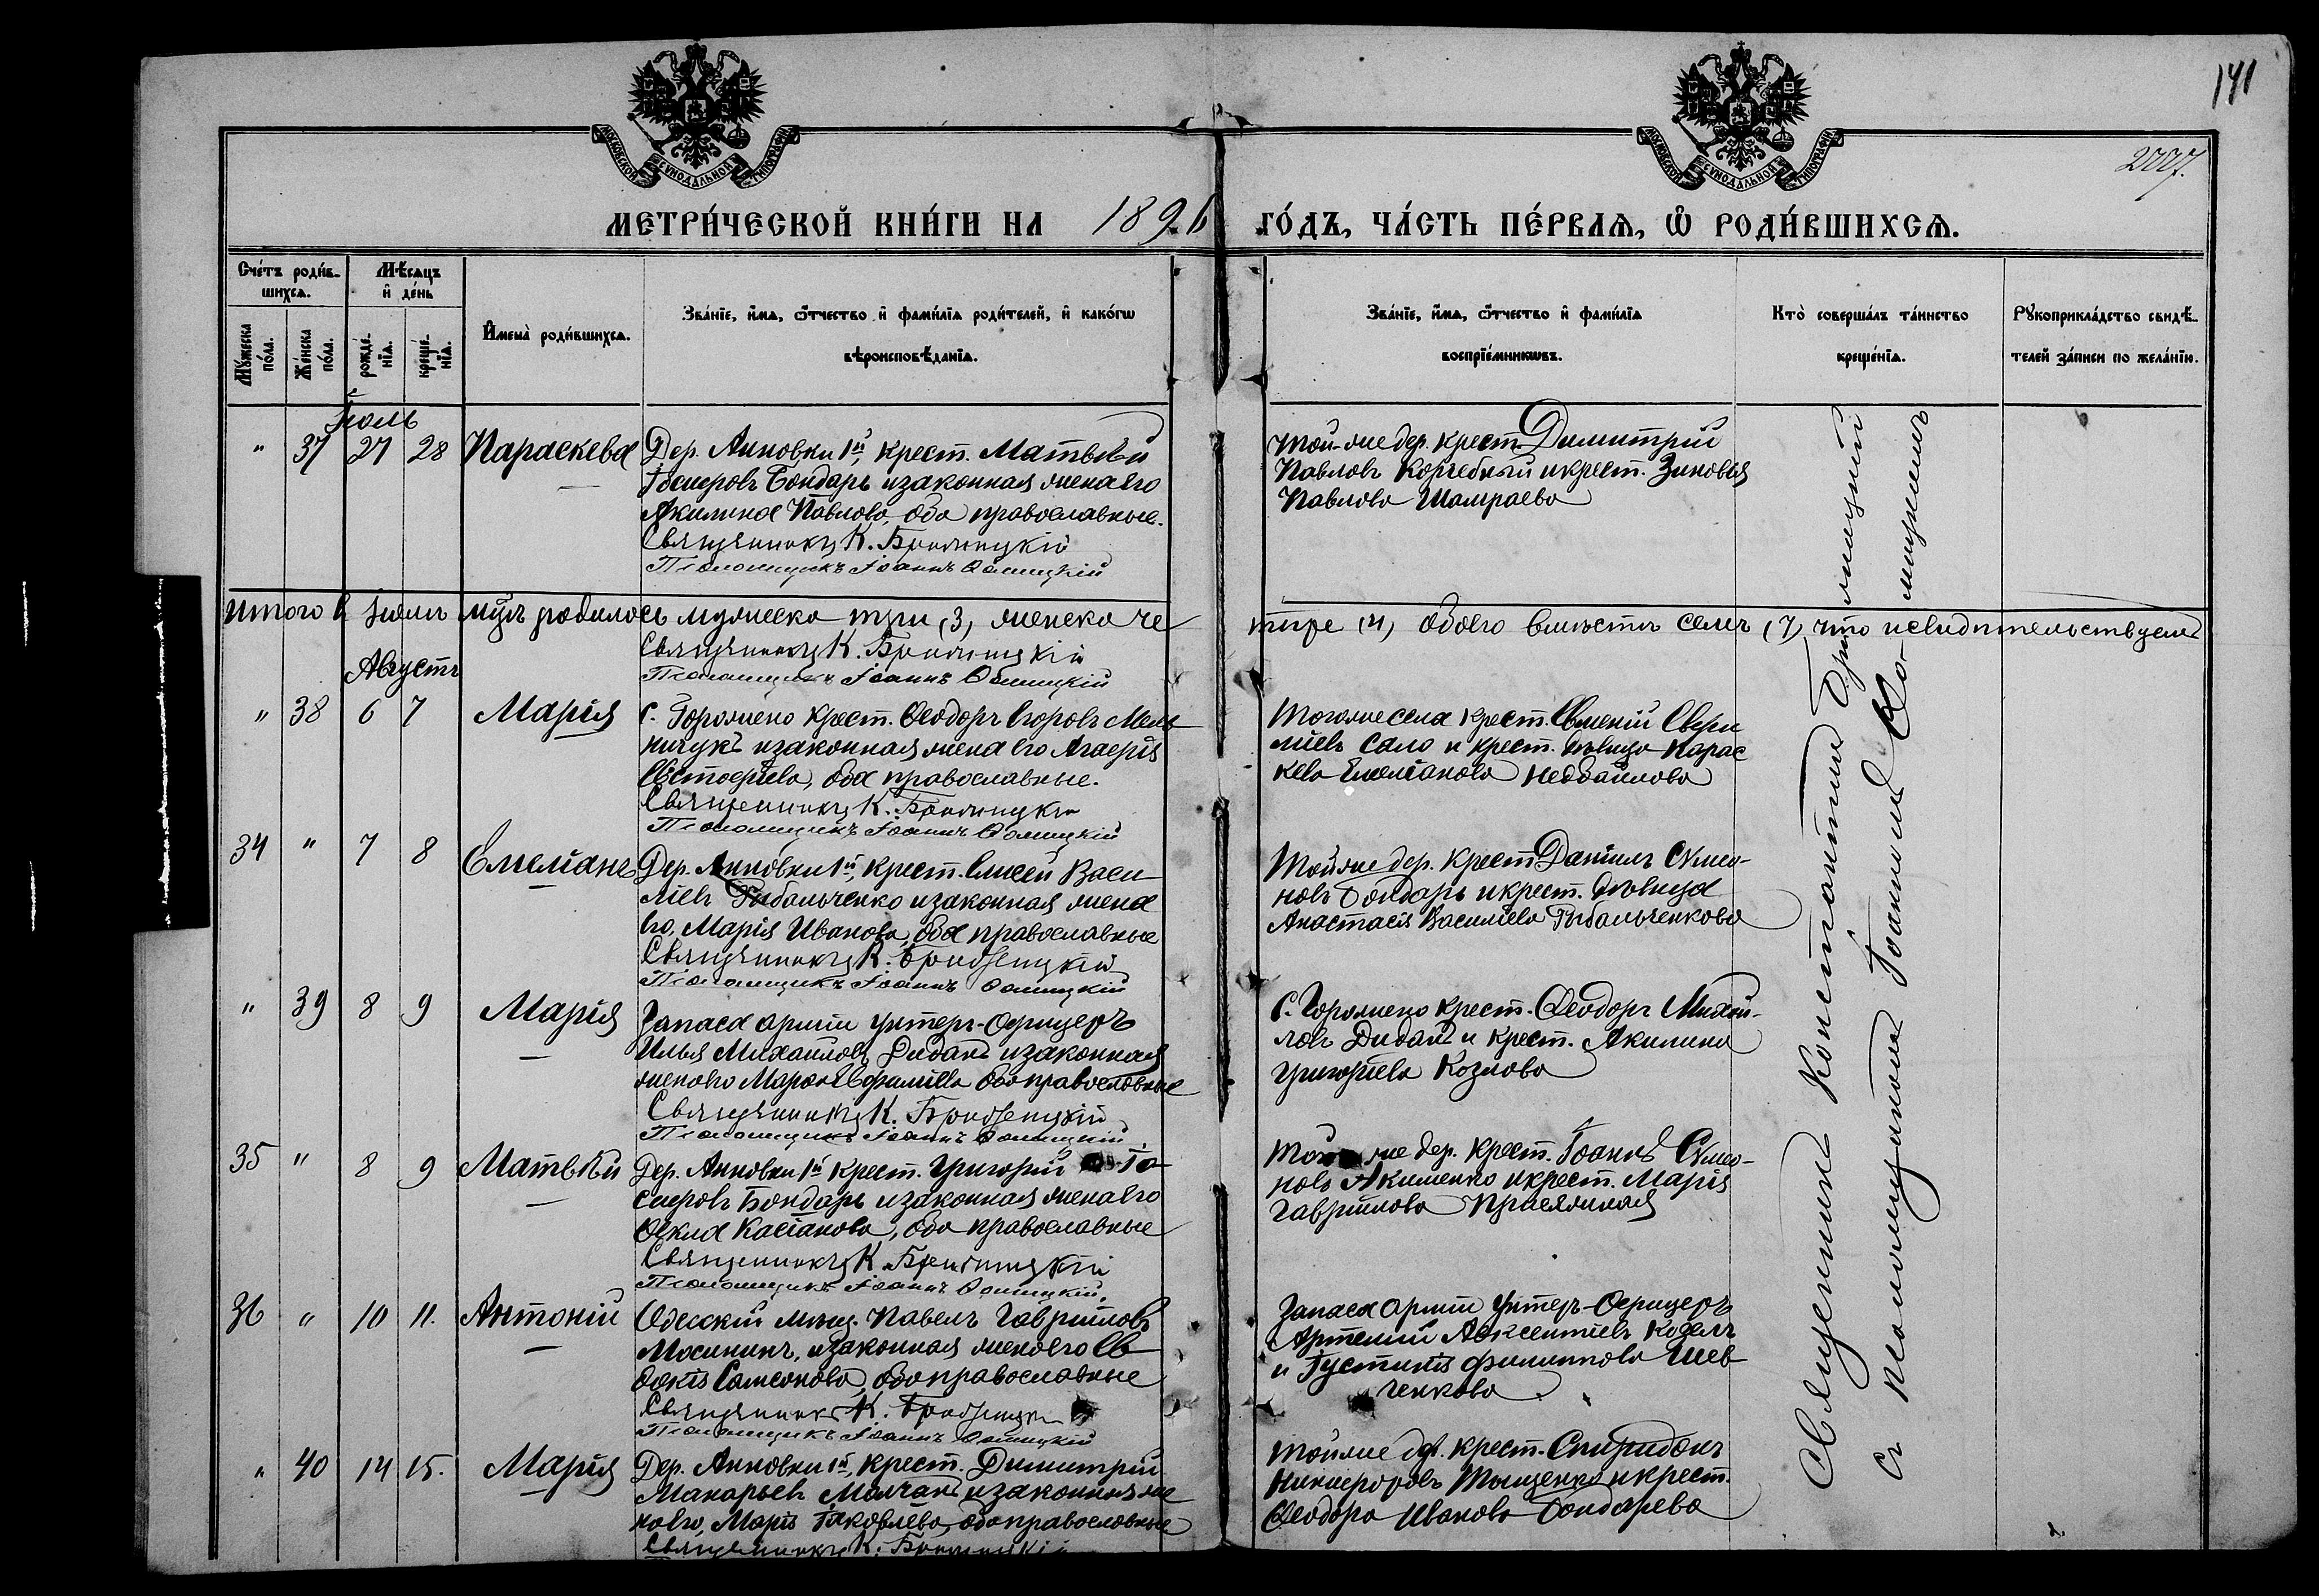 141
2007.
МОСКОВСКОЙ СУНОДАЛЬНОЙ ТИПОГРАФІИ
МОСКОВСКОЙ СУНОДАЛЬНОЙ ТИПОГРАФІИ
МЕТРИ́ЧЕСКОЙ КНИ́ГИ НА 1896 ГО́ДЪ, ЧА́СТЬ ПЕ́РВАЯ, Ѿ РОДИ́ВШИХСЯ.
Счетъ родив-
шихся.
Мѣсяцъ
и день
Мужеска
пола.
Женска
пола.
рожде-
нія.
креще-
нія.
Имена родившихся.
Званіе, имя, отчество и фамилія родителей, и какогω
вѣроисповѣданія.
Званіе, имя, отчество и фамилія
воспріемниковъ.
Кто совершалъ таинство
крещенія.
Рукоприкладство свидѣ-
телей записи по желанію.
Іюль
" 37 27 28 Параскева
Дер. Анновки 1й, крест. Матвѣй
Іосифовъ Бондарь и законная жена его
Акилина Павлова, оба православные.
Священникъ К.
Псаломщикъ Іоаннъ
Той-же дер. крест. Димитрий
Павловъ и крест. Зиновія
Павлова Шамраева
Итого в Іюлѣ м-цѣ родилось мужеска три (3) женска че
тыре (4) обоего вмѣстѣ семь (7) что и свидѣтельствуемъ
Священникъ К.
Псаломщикъ Іоаннъ
Августъ
" 38 6 7 Марія
С. Горожено крест. Ѳеодоръ Егоровъ Мель
ничукъ и законная жена его Агафія
Евстафіева, оба православные.
Священникъ К.
Псаломщикъ Іоаннъ
Тогоже села крест. Евменій
Сало и крест. дѣвица Парас
кева Емеліанова Недбайлова
34 " 7 8 Емеліанъ
Дер. Анновки 1й, крест. Елисей Васи
ліевъ Рыбальченко и законная жена
его, Марія Иванова, оба православные
Священникъ К.
Псаломщикъ Іоаннъ
Тойже дер. крест Даніилъ Сѵмео-
новъ Бондарь и крест. дѣвица
Анастасія Василіева Рыбальченкова
" 39 8 9 Марія
Запаса арміи Унтеръ-Офицеръ
Илья Михайловъ Диданъ и законная
жена его Марѳа Евфиміева оба православные
Священникъ К.
Псаломщикъ Іоаннъ
С. Горожено крест. Ѳеодоръ Михай-
ловъ Диданъ и крест. Акилина
Григоріева Козлова
35 " 8 9 Матвѣй
Дер. Анновки 1й крест. Григорій Іо-
сифовъ Бондарь и законная жена его
Ѳекла Касіанова, оба православные
Священникъ К.
Псаломщикъ Іоаннъ
Той же дер. крест. Іоаннъ Сѵмео-
новъ Акименко и крест. Марія
Гавриілова Присяжная
36 " 10 11. Антоній
Одесскій мѣщ. Павелъ Гавриіловъ
и законная жена его Ев
докія Самсонова, оба православные
Священникъ К.
Псаломщикъ Іоаннъ
Запаса арміи Унтеръ-Офицеръ
Артемій Авксентіевъ
и Іустинія Филиппова Шев
ченкова
" 40 14 15. Марія
Дер. Анновки 1й, крест. Димитрій
Макарьевъ Молчанъ и законная же
на его, Марія Іаковлева, оба православные
Священникъ К.
Тойже дер. крест. Спиридонъ
Никифоровъ Тищенко и крест.
Ѳеодора Иванова Бондарева
Священникъ Константинъ
съ псаломщикомъ Іоанномъ